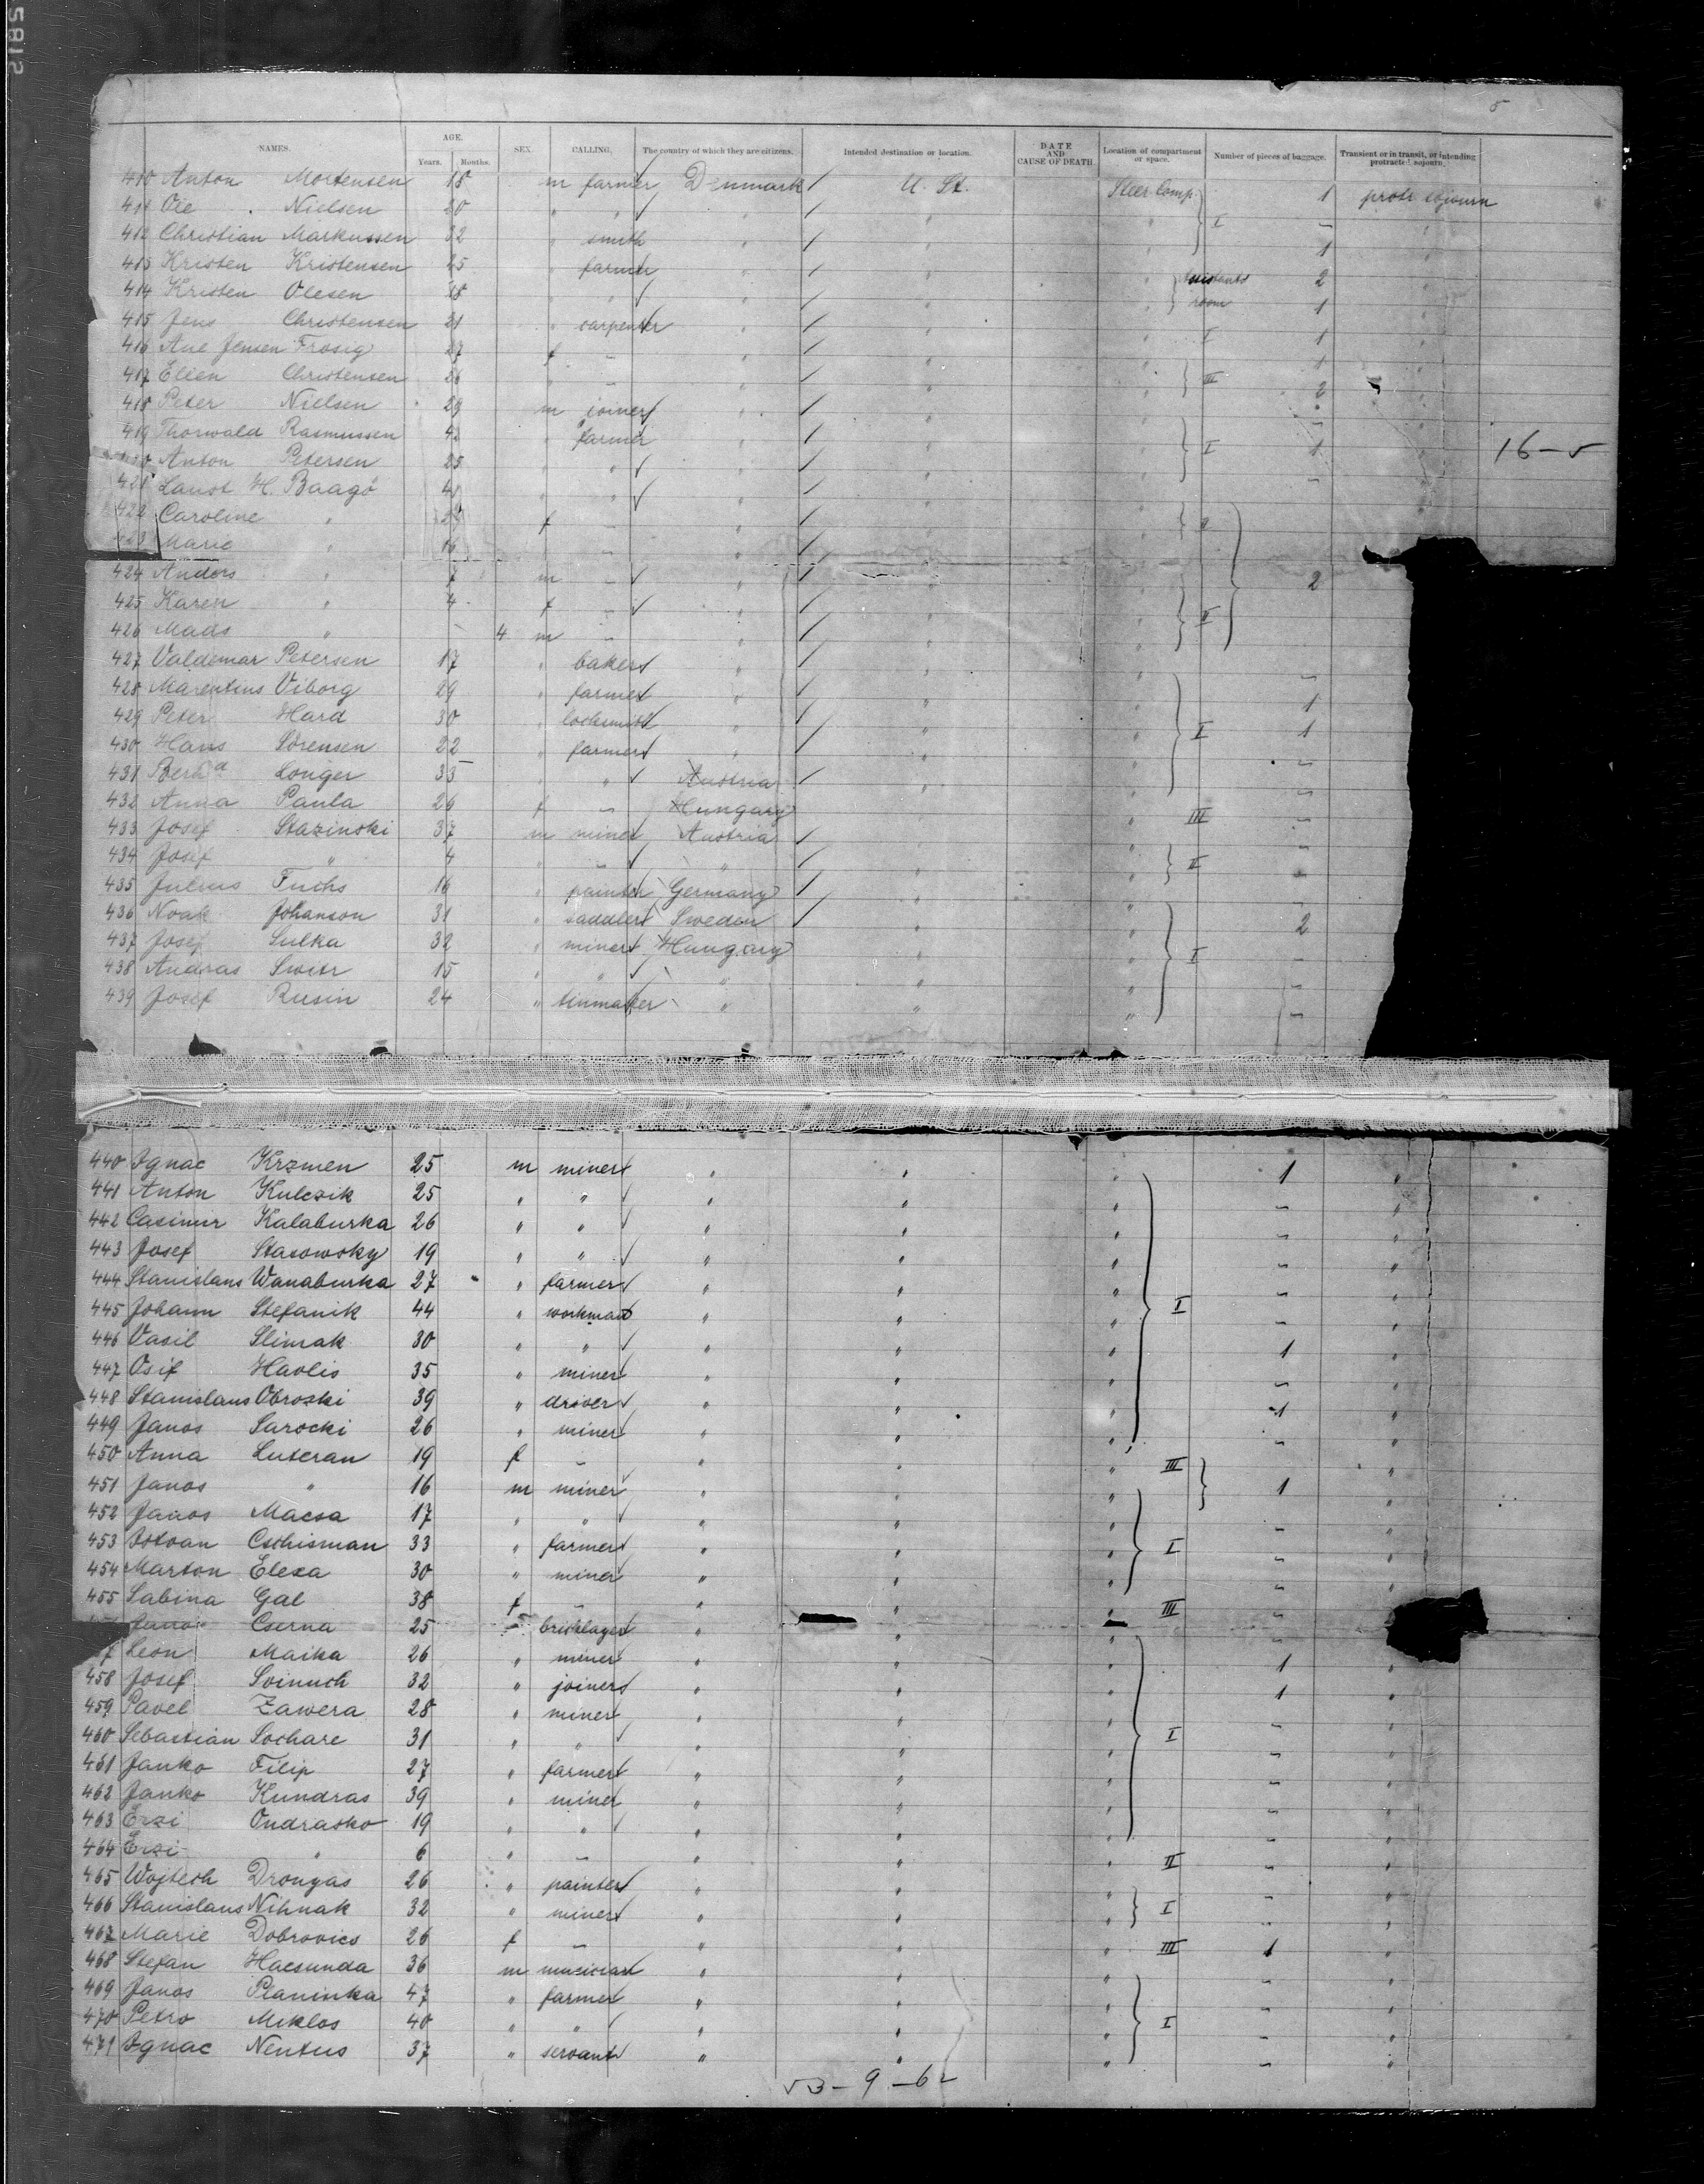 5
NAMES. AGE. Years. Months. SEX. CALLING. The country of which they are citizens. Intended destination or location. DATE AND CAUSE OF DEATH. Location of compartment or space. Number of pieces of baggage. Transient or in transit, or intending protracted sojourn.
410 Anton Mortensen 18 m farmer Denmark U. St. Steer Comp 1 protr sojourn
411 Ole Nielsen 20 " " " " " I – "
412 Christian Markussen 32 " smith " " " 1 "
413 Kristen Kristensen 25 " farmer " " " 2 "
414 Kristen Olesen 28 " " " " " room 1 "
415 Jens Christensen 21 " carpenter " " " I 1 "
416 Ane Jensen Frosig 27 f – " " " 1 "
417 Ellen Christensen 26 " – " " " III 2 "
418 Peter Nielsen 29 m joiner " " " – "
419 Thorwald Rasmussen 42 " farmer " " " I 1 " 16–5
420 Anton Petersen 25 " " " " " "
421 Laust H. Baagö 41 " " " " " –
422 Caroline " f – " " " "
423 Marie " 16 " – " " "
424 Anders " 7 m – " " " 2
425 Karen " 4 f – " " "
426 Mads " – 4 m – " " " II
427 Valdemar Petersen 17 " baker " " " –
428 Marentius Viborg 29 " farmer " " " 1
429 Peter Hard 30 " " " " I 1
430 Hans Sörensen 22 " farmer " " " –
431 Berhd Longer 33 " " Austria " " –
432 Anna Paula 26 f – Hungary " " III –
433 Josef Stazinski 37 m miner Austria " " –
434 Josef " 4 " – " " " II –
435 Julius Fuchs 16 " painter Germany " " –
436 Noak Johanson 31 " saddler Sweden " " 2
437 Josef Sulka 32 " miner Hungary " " I –
438 Andras Switr 15 " " " " " –
439 Josef Rusin 24 " tinmaker " " " –
440 Ignac Krzmen 25 m miner " " " 1 "
441 Anton Kulczik 25 " " " " " – "
442 Casimir Kalaburka 26 " " " " " – "
443 Josef Stasowsky 19 " " " " " – "
444 Stanislaus Wanaburka 27 " farmer " " " – "
445 Johann Stefanik 44 " workman " " " I – "
446 Vasil Slimak 30 " " " " " 1 "
447 Osif Havlis 35 " miner " " " – "
448 Stanislaus Obroski 39 " driver " " " 1 "
449 Janos Sarocki 26 " miner " " " – "
450 Anna Luteran 19 f – " " " III "
451 Janos " 16 m miner " " " 1 "
452 Janos Macsa 17 " " " " " – "
453 Istvan Cschisman 33 " farmer " " " I – "
454 Marton Elexa 30 " miner " " " – "
455 Sabina Gal 38 f – " " " III –
Janos Cserna 25 – bricklayer " " –
7 Leon Maika 26 " miner " " " 1 "
458 Josef Svinuch 32 " joiner " " " 1 "
459 Pavel Zawera 28 " miner " " " – "
460 Sebastian Sochare 31 " " " " " I – "
461 Janko Filip 27 " farmer " " " – "
462 Janko Kundras 39 " miner " " " – "
463 Erzi Ondrasko 19 " " " " " – "
464 Erzi " 6 " – " " " II – "
465 Wojtech Drongas 26 " painter " " " – "
466 Stanislaus Nihnak 32 " miner " " " I – "
467 Marie Dobrovics 26 f – " " " III 1 "
468 Stefan Hacsunda 36 m musician " " " – "
469 Janos Planinka 47 " farmer " " " – "
470 Petro Miklos 40 " " " " " I – "
471 Ignac Nentus 37 " servant " " " – "
53–9–6